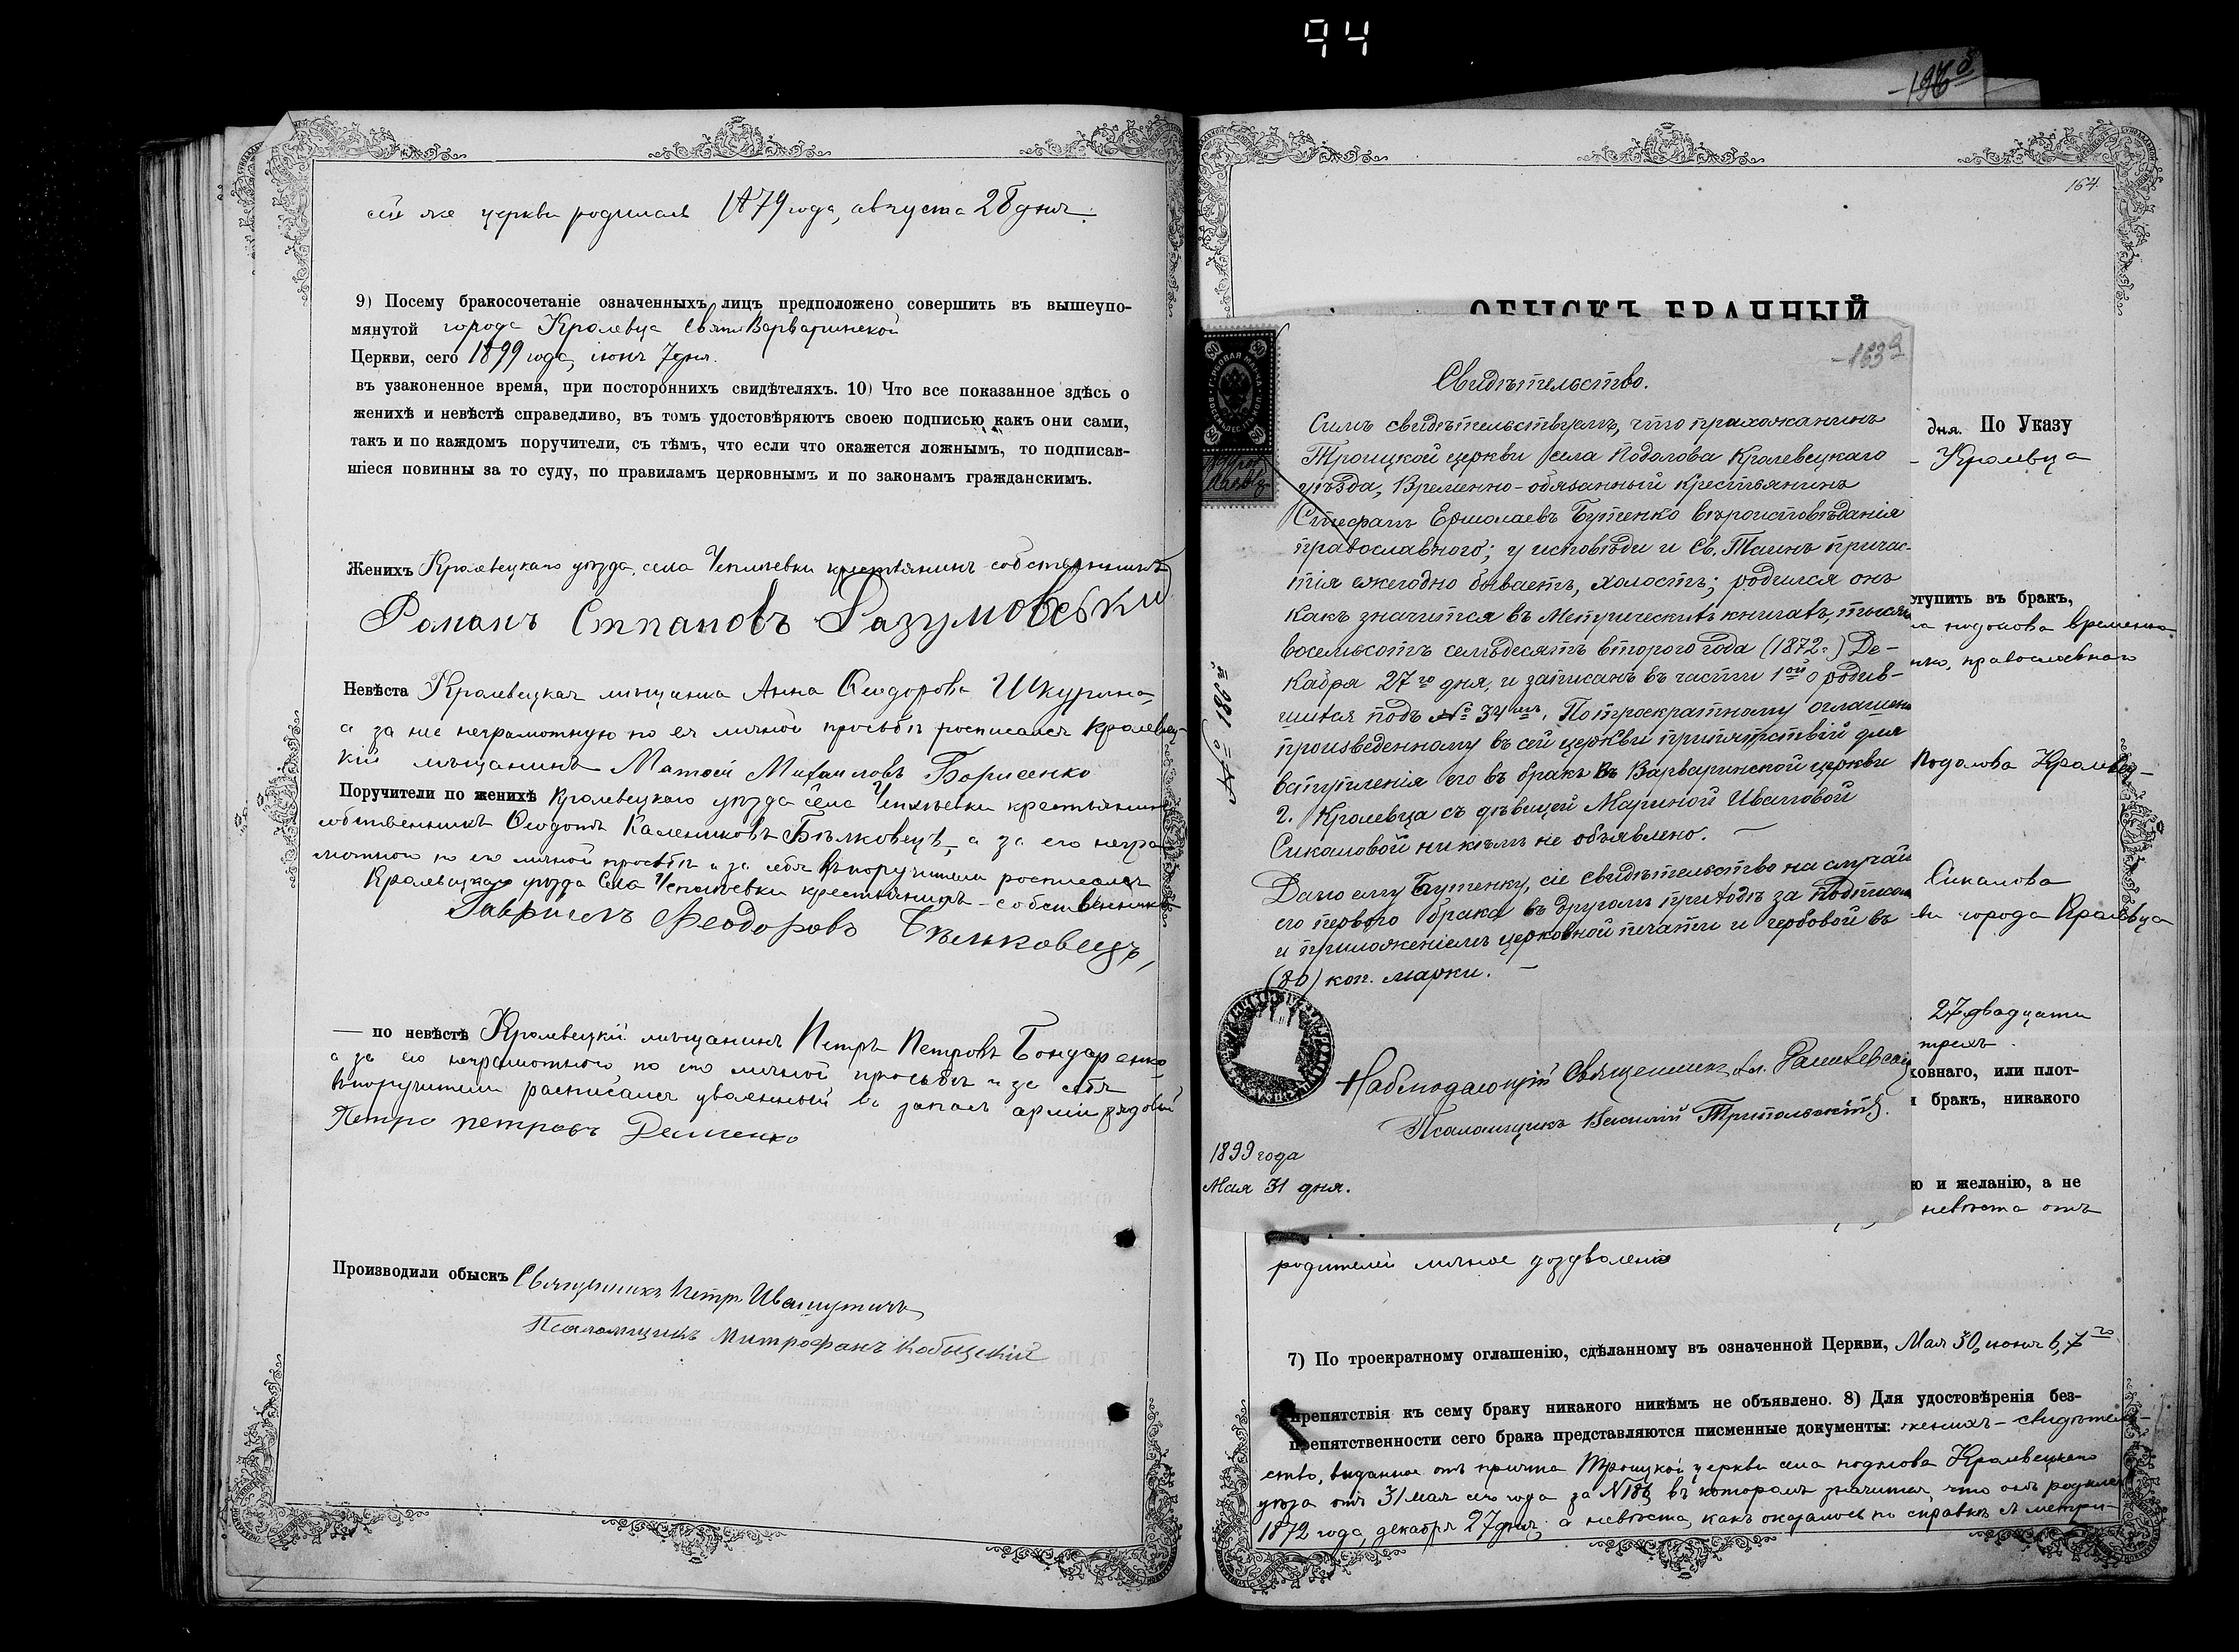 94
сей же церкви родилась 1879 года, августа 28 дня.
9) Посему бракосочетаніе означенныхъ лицъ предположено совершить въ вышеупо-
мянутой города Кролевца Свято Варваринской
Церкви, сего 1899 года, іюня 7 дня.
въ узаконенное время, при постороннихъ свидѣтеляхъ. 10) Что все показанное здѣсь о
женихѣ и невѣстѣ справедливо, въ томъ удостовѣряютъ своею подписью какъ они сами,
такъ и по каждомъ поручители, съ тѣмъ, что если что окажется ложнымъ, то подписав-
шіеся повинны за то суду, по правиламъ церковнымъ и по законамъ гражданскимъ.
Женихъ Кролевецкаго уѣзда, села Чепліевки крестьянинъ собственникъ
Романъ Стпановъ Разумовски
Невѣста Кролевецкая мѣщанка Анна Ѳеодорова Шкурина,
а за нее неграмотную по ея личной просьбѣ росписался Кролевец-
кій мѣщанинъ Матѳей Михаиловъ Борисенко
Поручители по женихѣ Кролевецкаго уѣзда села Чепліевки крестьянинъ
собственникъ Ѳеодотъ Калениковъ Бѣлковецъ, а за его негра-
мотного по его личной просьбѣ и за себя въ поручители росписался
Кролевецкаго уѣзда Села Чепліевки крестьянинъ-собственникъ
Гавріилъ Феодоровъ Бѣлковецъ,
— по невѣстѣ Кролевецкій мѣщанинъ Петръ Петровъ Бондаренко
а за его неграмотного, по его личной просьбѣ и за себя
въ поручители расписался уволенный въ запасъ арміи рядовой
Петро петровъ Демченко
Производили обыскъ Священникъ Петръ Ивашутичъ
Псаломщикъ Митрофанъ Кобыцкій
164.
ОБЫСКЪ БРАЧНЫЙ
163а
Свидѣтельство.
Симъ свидѣтельствуемъ, что прихожанинъ
Троицкой церкви села Подолова Кролевецкаго
уѣзда, Временно-обязанный крестьянинъ
Стефанъ Ермолаевъ Бутенко вѣроисповѣданія
православного; у исповѣди и Св. Таинъ причас-
тія ежегодно бываетъ, холостъ; родился онъ
какъ значится въ Метрическихъ книгахъ, тысяча
восемьсотъ семьдесятъ второго года (1872 г.) Де-
кабря 27 го дня, и записанъ въ части 1ой о родив-
шихся подъ № 34 мъ. По троекратному оглашен
произведенному въ сей церкви препятствій для
вступленія его въ бракъ въ Варваринской церкви
г. Кролевца съ дѣвицей Мариной Ивановой
Сикаловой никѣмъ не объявлено. —
Дано ему Бутенку, сіе свидѣтельство на случай
его первого брака въ другомъ приходѣ за подписом
и приложеніемъ церковной печати и гербовой въ
(80) коп. марки. —
Наблюдающій Священникъ
Псаломщикъ Василій Трипольскій.
1899 года
Мая 31 дня.
№ 186й
ГЕРБОВАЯ МАРКА
80
дня. По Указу
Кролевца
ступить въ бракъ,
подолова временно
нко, православнаго
Подолова Кролевец-
Сикалова
ви города Кролевца
27 двадцати
трехъ
ховнаго, или плот-
бракъ, никакого
ю и желанію, а не
невѣста отъ
родителей личное дозволеніе
7) По троекратному оглашенію, сдѣланному въ означенной Церкви, Мая 30, іюня 6, 7 го
препятствія къ сему браку никакого никѣмъ не объявлено. 8) Для удостовѣренія без-
препятственности сего брака представляются писменные документы: женихъ — свидѣтель-
ство, выданное отъ причта Троицкой церкви села подолова Кролевецкаго
уѣзда отъ 31 мая сего года за № 186, въ которомъ значится, что онъ родился
1872 года, декабря 27 дня, а невѣста, какъ оказалось по справкѣ съ метри-